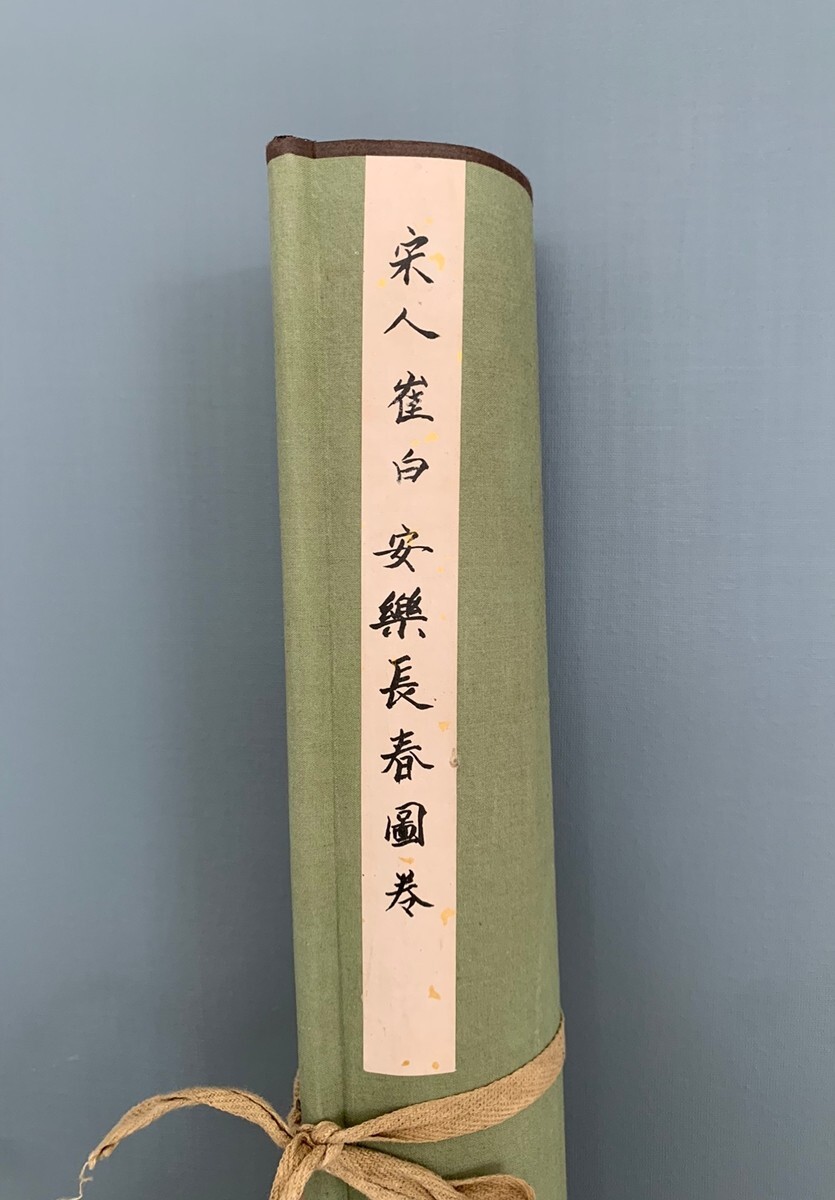 宋人崔白安樂長春圖卷